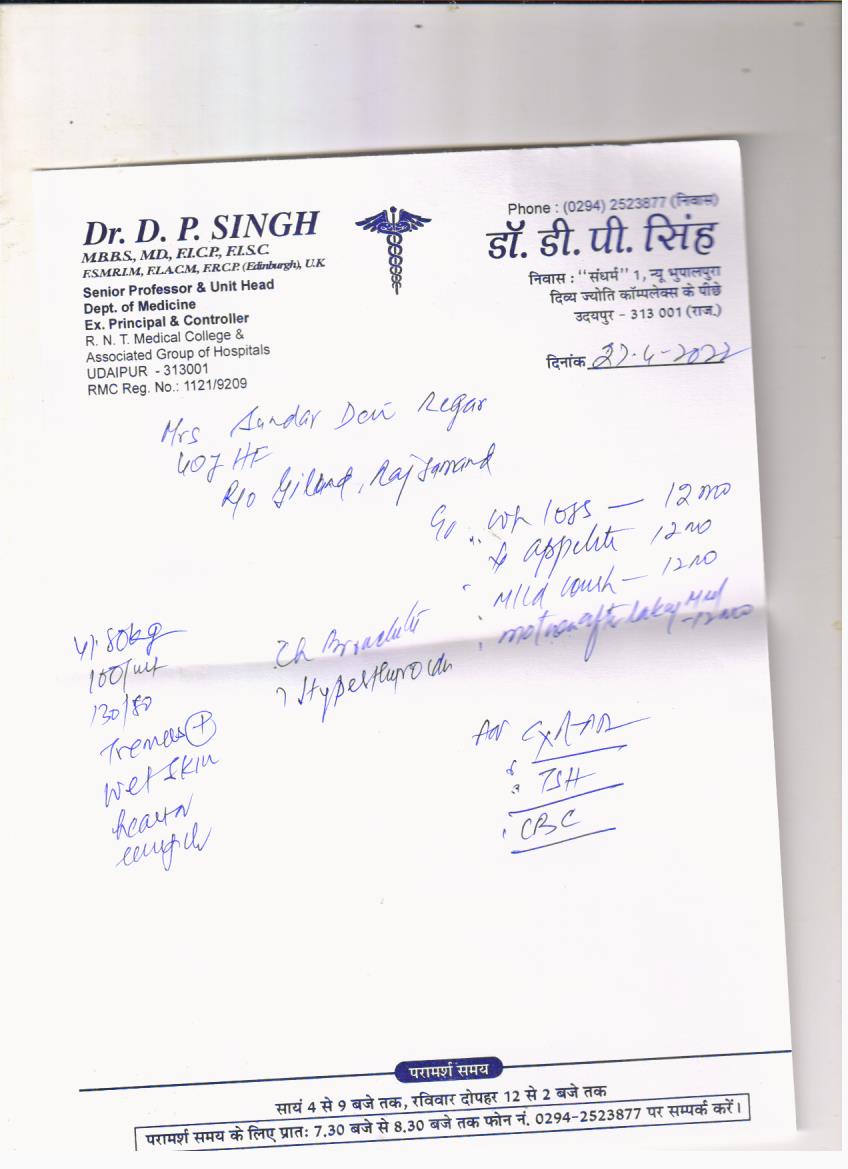 Dr. D. P. SINGH
M.B.B.S., MD, F.I.C.P., F.I.S.C.
F.S.M.R.I.M, F.I.A.C.M, F.R.C.P. (Edinburgh), U.K
Senior Professor & Unit Head
Dept. of Medicine
Ex. Principal & Controller
R. N. T. Medical College &
Associated Group of Hospitals
UDAIPUR - 313001
RMC Reg. No.: 1121/9209
Phone : (0294) 2523877 (निवास)
डॉ. डी. पी. सिंह
निवास : "संधर्म" 1, न्यू भुपालपुरा
दिव्य ज्योति कॉम्पलेक्स के पीछे
उदयपुर - 313 001 (राज.)
दिनांक 27-4-2022
Mrs Sundar Devi Regar
40y HF
R/o Gilund, Rajsamand
c/o wt loss — 12 mo
appetite 12 mo
Mild cough — 12 mo
motion after taking Med - 12 mo
80kg
100/mt
130/80
Tremors +
Wet Skin
heart N
Ch Bronchitis
? Hyperthyroidism
Adv CXR-PA
TSH
CBC
परामर्श समय
सायं 4 से 9 बजे तक, रविवार दोपहर 12 से 2 बजे तक
परामर्श समय के लिए प्रातः 7.30 बजे से 8.30 बजे तक फोन नं. 0294-2523877 पर सम्पर्क करें।